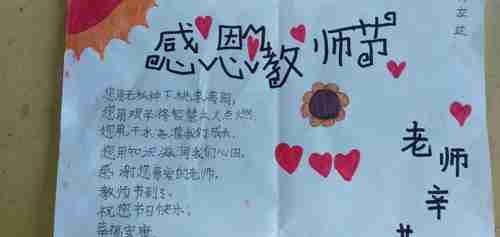 感恩教师节
您用无私种下桃李满园,
您用艰辛将智慧之火点燃
您用汗水浇灌我们成长,
您用知识滋润我们心田,
感谢您亲爱的老师,
教师节到了,
祝您节日快乐,
幸福安康
老师辛